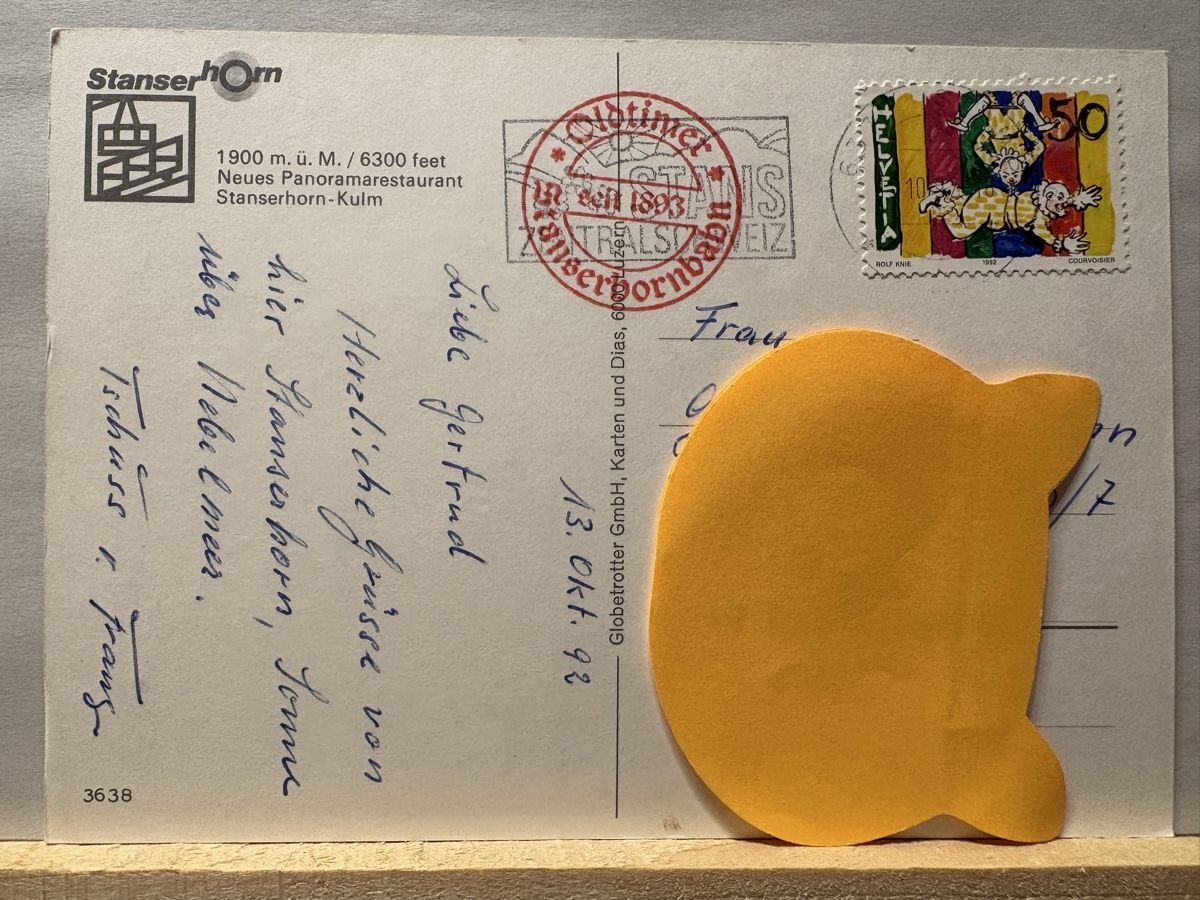 Stanserhorn
1900 m. ü. M. / 6300 feet
Neues Panoramarestaurant
Stanserhorn-Kulm
13. Okt. 92
Liebe Gertrud
Herzliche Grüsse von
hier Stanserhorn, Sonne
über Nebelmeer.
Tschüss
3638
Globetrotter GmbH, Karten und Dias, 6000 Luzern
Oldtimer
seit 1893
Stanserhornbahn
STANS
ZENTRALSCHWEIZ
HELVETIA
50
ROLF KNIE 1992 COURVOISIER
Frau
/7